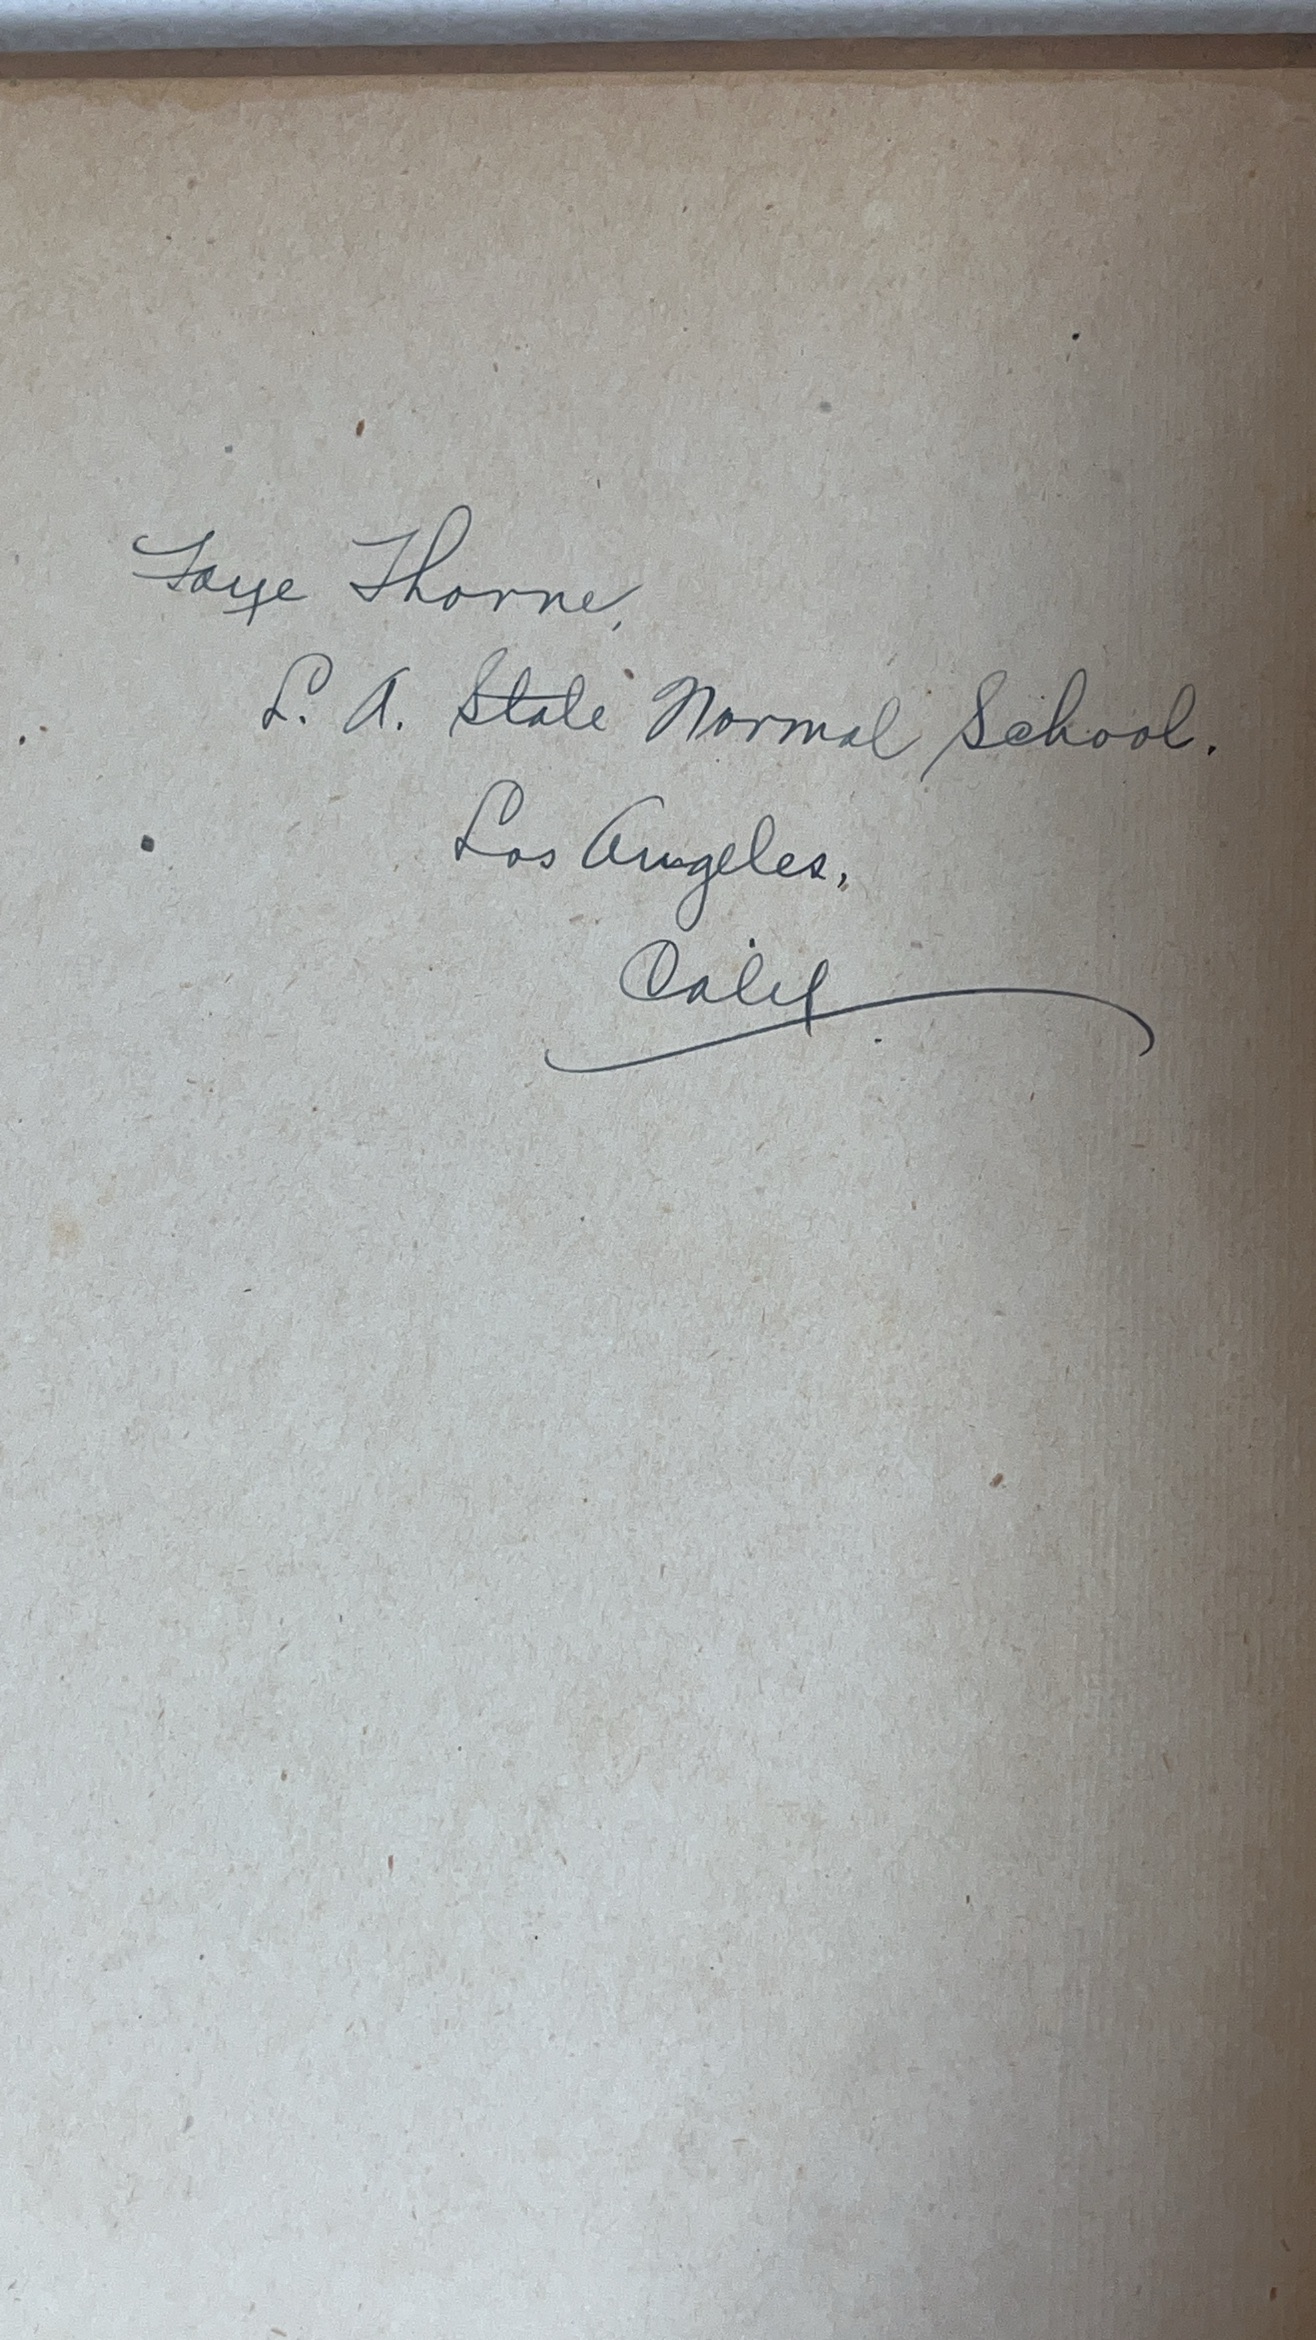 Faye Thorne,
L. A. State Normal School.
Los Angeles,
Calif